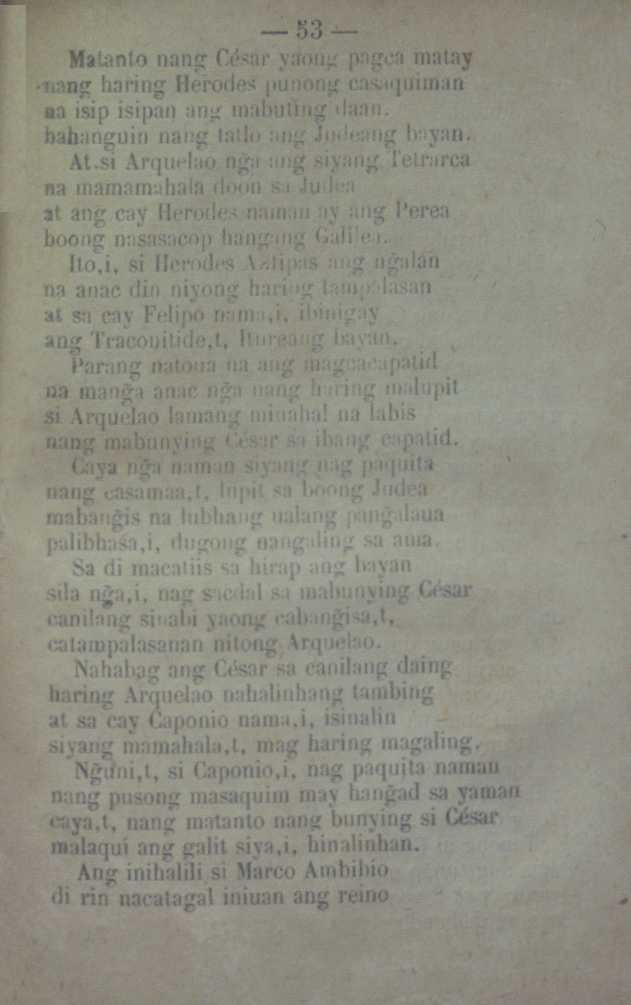 — 53 —
Matanto nang César yaong pagca matay
nang haring Herodes punong casaquiman
na isip isipan ang mabuting daan.
bahanguin nang tatlo ang Judeang bayan.
At.si Arquelao nğa ang siyang Tetrarca
na mamamahala doon sa Judea
at ang cay Herodes naman ay ang Perea
boong nasasacop hangang Galilea.
Ito,i, si Herodes Antipas ang nğalan
na anac din niyong haring tampalasan
at sa cay Felipo nama,i, ibinigay
ang Traconitide,t, Itureang bayan.
Parang natoua na ang magcacapatid
na manğa anac nğa nang haring malupit
si Arquelao lamang minahal na labis
nang mabunying César sa ibang capatid.
Caya nğa naman siyang nag paquita
nang casamaa,t, lupit sa boong Judea
mabanğis na lubhang ualang panğalaua
palibhasa,i, dugong nangaling sa ama.
Sa di macatiis sa hirap ang bayan
sila nğa,i, nag sacdal sa mabunying César
canilang sinabi yaong cabanğisa,t,
catampalasanan nitong Arquelao.
Nahabag ang César sa canilang daing
haring Arquelao nahalinhang tambing
at sa cay Caponio nama,i, isinalin
siyang mamahala,t, mag haring magaling.
Nğuni,t, si Caponio,i, nag paquita naman
nang pusong masaquim may hanğad sa yaman
caya,t, nang matanto nang bunying si César
malaqui ang galit siya,i, hinalinhan.
Ang inihalili si Marco Ambibio
di rin nacatagal iniuan ang reino